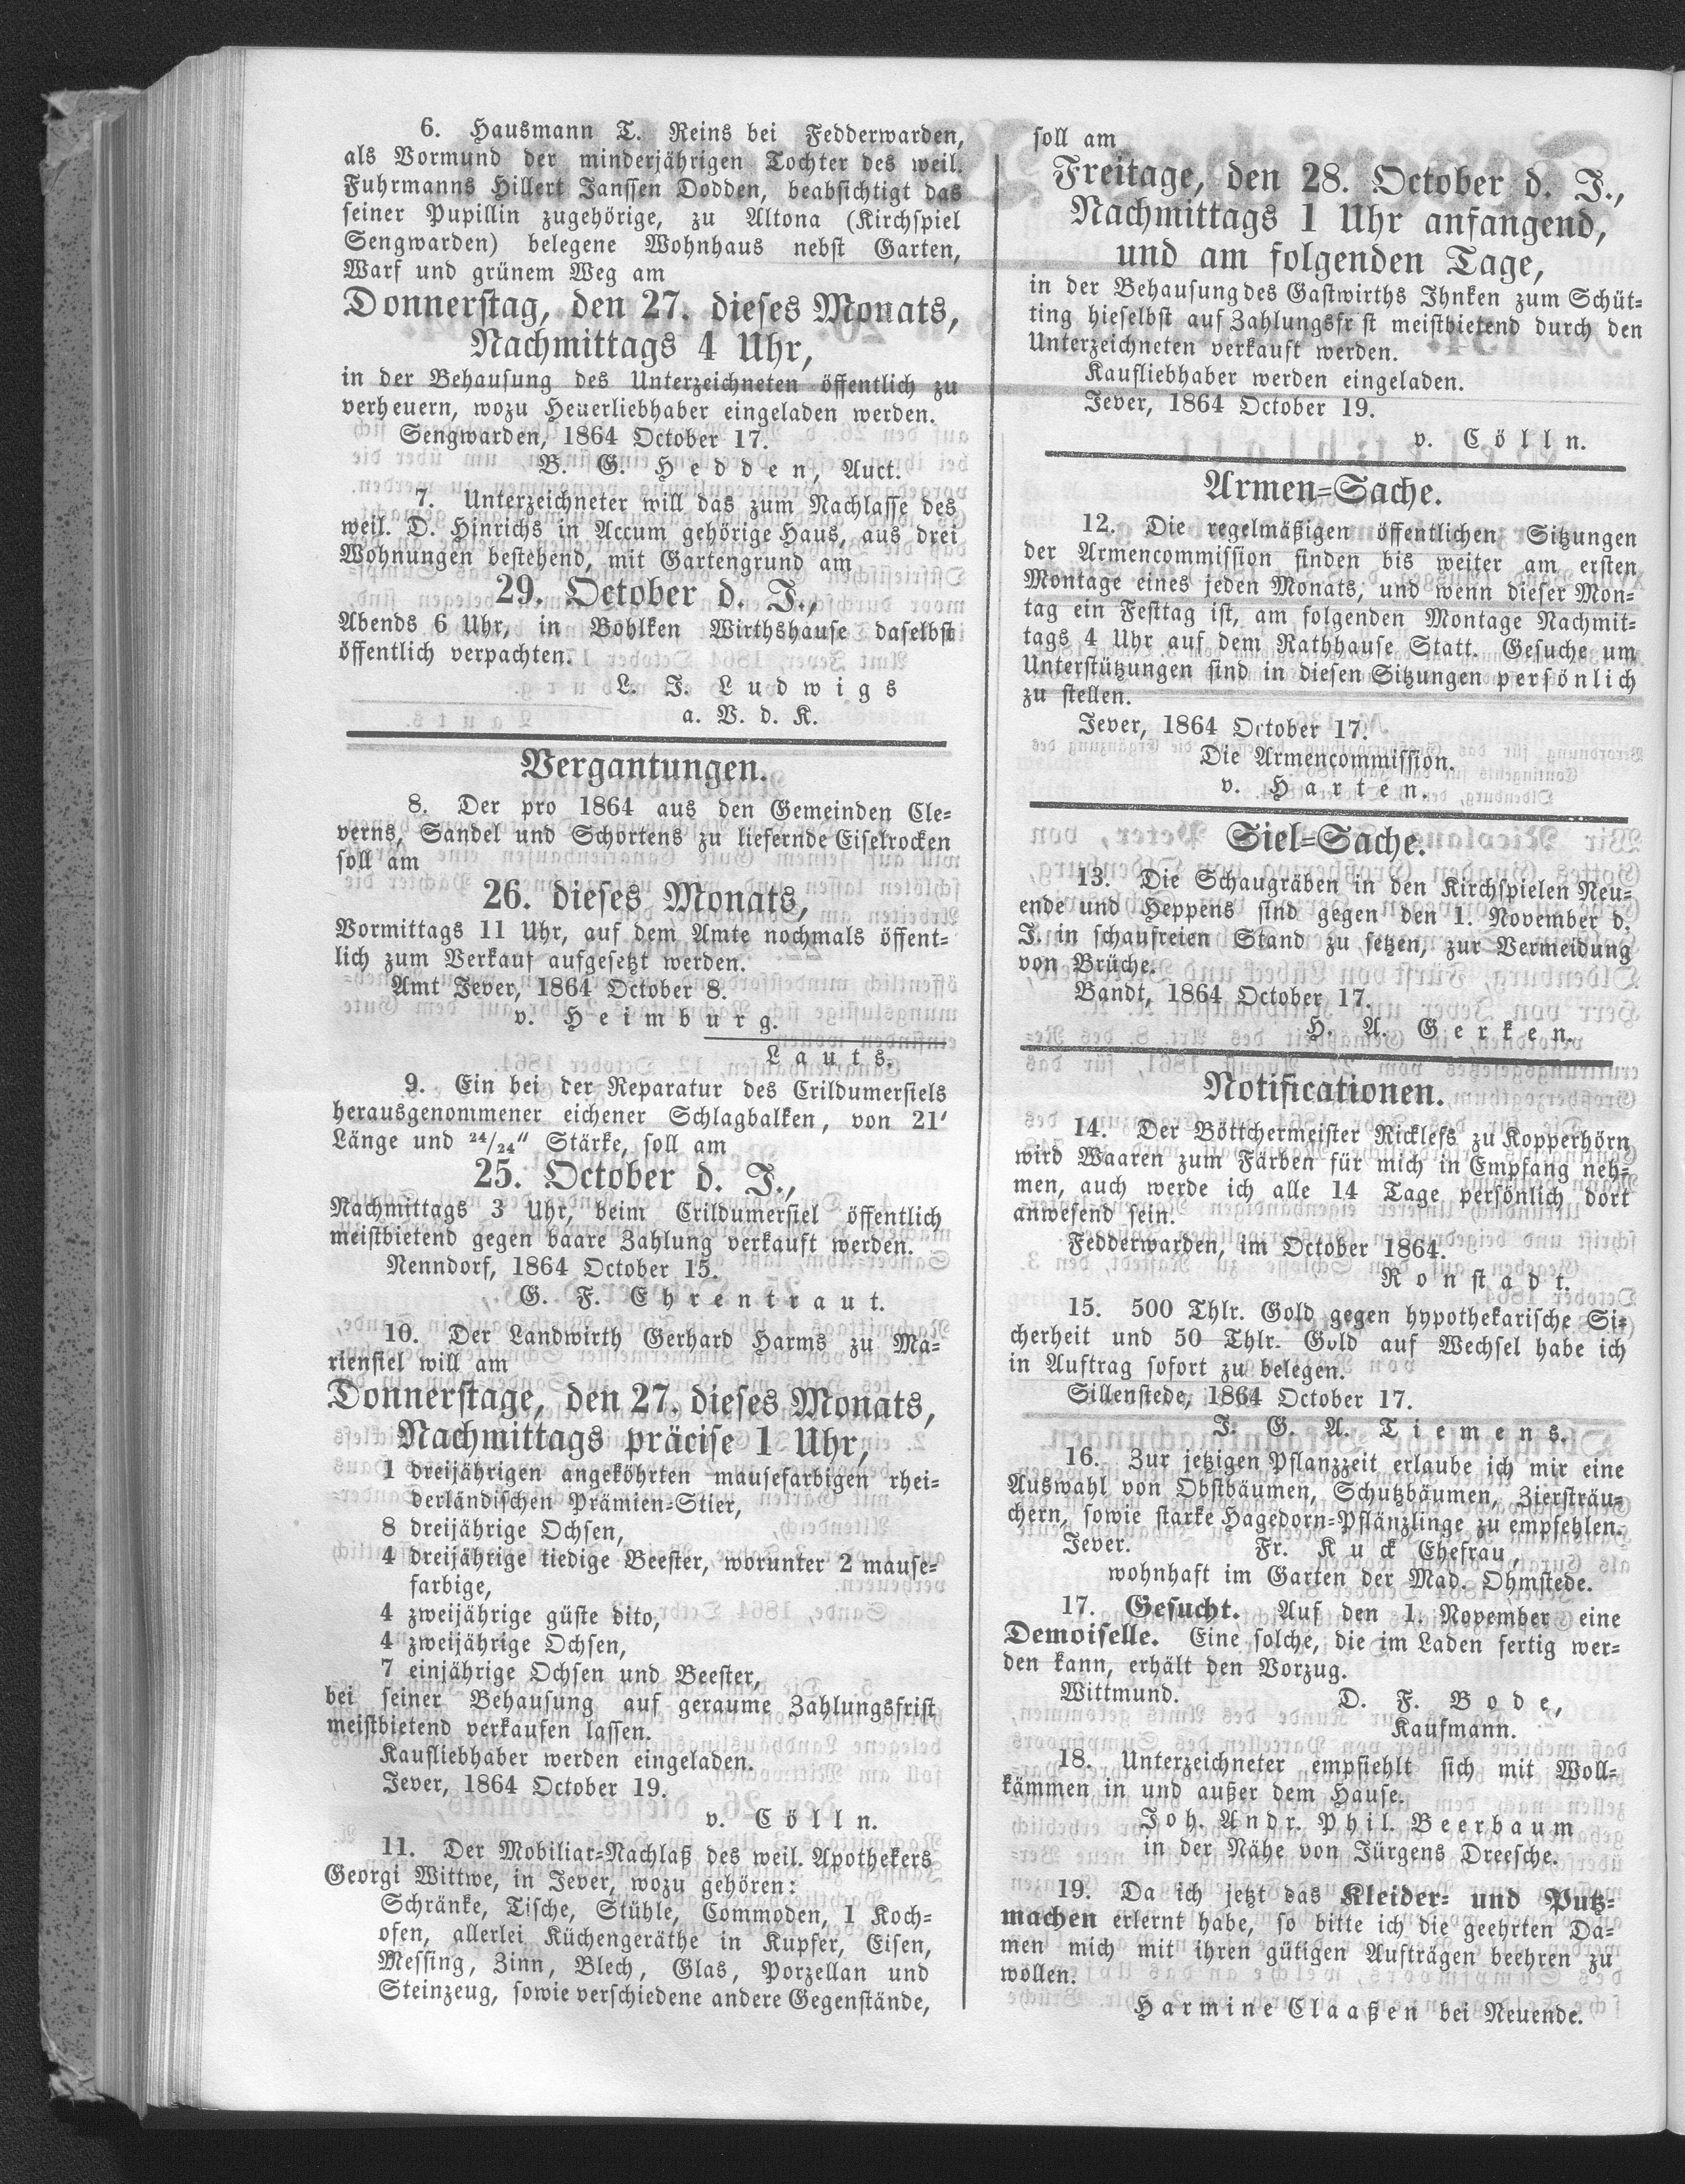 6. Hausmann T. Reins bei Fedderwarden,
als Vormund der minderjährigen Tochter des weil.
Fuhrmanns Hillert Janssen Dodden, beabsichtigt das
seiner Pupillin zugehörige, zu Altona (Kirchspiel
Sengwarden) belegene Wohnhaus nebst Garten,
Warf und grünem Weg am
Donnerstag, den 27. dieses Monats,
Nachmittags 4 Uhr,
in der Behausung des Unterzeichneten öffentlich zu
verheuern, wozu Heuerliebhaber eingeladen werden.
Sengwarden, 1864 October 17.
B. G. Hedden, Auct.
7. Unterzeichneter will das zum Nachlasse des
weil. D. Hinrichs in Accum gehörige Haus, aus drei
Wohnungen bestehend, mit Gartengrund am
29. October d. J.,
Abends 6 Uhr, in Bohlken Wirthshause daselbst
öffentlich verpachten.
L. J. Ludwigs
a. V. d. K.
Vergantungen.
8. Der pro 1864 aus den Gemeinden Cle-
verns, Sandel und Schortens zu liefernde Eiselrocken
soll am
26. dieses Monats,
Vormittags 11 Uhr, auf dem Amte nochmals öffent-
lich zum Verkauf aufgesetzt werden.
Amt Jever, 1864 October 8.
v. Heimburg.
Lauts.
9. Ein bei der Reparatur des Crildumersiels
herausgenommener eichener Schlagbalken, von 21'
Länge und 24/24" Stärke, soll am
25. October d. J.,
Nachmittags 3 Uhr, beim Crildumersiel öffentlich
meistbietend gegen baare Zahlung verkauft werden.
Nenndorf, 1864 October 15.
G. F. Ehrentraut.
10. Der Landwirth Gerhard Harms zu Ma-
riensiel will am
Donnerstage, den 27. dieses Monats,
Nachmittags präcise 1 Uhr,
1 dreijährigen angeköhrten mausefarbigen rhei-
derländischen Prämien-Stier,
8 dreijährige Ochsen,
4 dreijährige tiedige Beester, worunter 2 mause-
farbige,
4 zweijährige güste dito,
4 zweijährige Ochsen,
7 einjährige Ochsen und Beester,
bei seiner Behausung auf geraume Zahlungsfrist
meistbietend verkaufen lassen.
Kaufliebhaber werden eingeladen.
Jever, 1864 October 19.
v. Cölln.
11. Der Mobiliar-Nachlaß des weil. Apothekers
Georgi Wittwe, in Jever, wozu gehören:
Schränke, Tische, Stühle, Commoden, 1 Koch-
ofen, allerlei Küchengeräthe in Kupfer, Eisen,
Messing, Zinn, Blech, Glas, Porzellan und
Steinzeug, sowie verschiedene andere Gegenstände,
soll am
Freitage, den 28. October d. J.,
Nachmittags 1 Uhr anfangend,
und am folgenden Tage,
in der Behausung des Gastwirths Ihnken zum Schüt-
ting hieselbst auf Zahlungsfr st meistbietend durch den
Unterzeichneten verkauft werden.
Kaufliebhaber werden eingeladen.
Jever, 1864 October 19.
v. Cölln.
Armen-Sache.
12. Die regelmäßigen öffentlichen Sitzungen
der Armencommission finden bis weiter am ersten
Montage eines jeden Monats, und wenn dieser Mon-
tag ein Festtag ist, am folgenden Montage Nachmit-
tags 4 Uhr auf dem Rathhause Statt. Gesuche um
Unterstützungen sind in diesen Sitzungen persönlich
zu stellen.
Jever, 1864 October 17.
Die Armencommission.
v. Harten.
Siel-Sache.
13. Die Schaugräben in den Kirchspielen Neu-
ende und Heppens sind gegen den 1. November d.
J. in schaufreien Stand zu setzen, zur Vermeidung
von Brüche.
Bandt, 1864 October 17.
H. A. Gerken.
Notificationen.
14. Der Böttchermeister Ricklefs zu Kopperhörn
wird Waaren zum Färben für mich in Empfang neh-
men, auch werde ich alle 14 Tage persönlich dort
anwesend sein.
Fedderwarden, im October 1864.
Ronstadt.
15. 500 Thlr. Gold gegen hypothekarische Si-
cherheit und 50 Thlr. Gold auf Wechsel habe ich
in Auftrag sofort zu belegen.
Sillenstede, 1864 October 17.
J. G. A. Tiemens.
16. Zur jetzigen Pflanzzeit erlaube ich mir eine
Auswahl von Obstbäumen, Schutzbäumen, Ziersträu-
chern, sowie starke Hagedorn-Pflänzlinge zu empfehlen.
Jever. Fr. Kuck Ehefrau,
wohnhaft im Garten der Mad. Ohmstede.
17. Gesucht. Auf den 1. November eine
Demoiselle. Eine solche, die im Laden fertig wer-
den kann, erhält den Vorzug.
Wittmund. D. F. Bode,
Kaufmann.
18. Unterzeichneter empfiehlt sich mit Woll-
kämmen in und außer dem Hause.
Joh. Andr. Phil. Beerbaum
in der Nähe von Jürgens Dreesche.
19. Da ich jetzt das Kleider- und Putz-
machen erlernt habe, so bitte ich die geehrten Da-
men mich mit ihren gütigen Aufträgen beehren zu
wollen.
Harmine Claaßen bei Neuende.